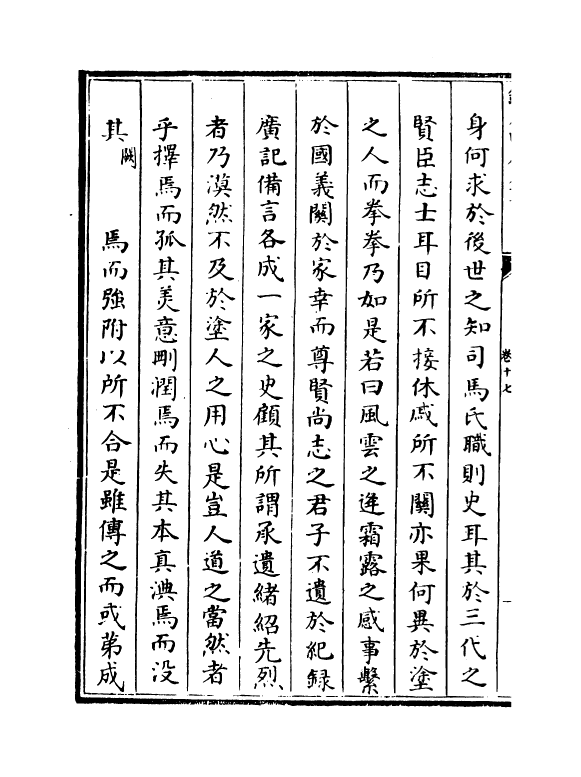 身何求於後世之知司馬氏職則史耳其於三代之
賢臣志士耳目所不接休戚所不關亦果何異於塗
之人而拳拳乃如是若曰風雲之逢霜露之感事繫
於國義關於家幸而尊賢尚志之君子不遺於紀録
廣記備言各成一家之史顧其所謂承遺緒紹先烈
者乃漠然不及於塗人之用心是豈人道之當然者
乎擇焉而孤其美意刪潤焉而失其本真淟焉而沒
其闕焉而強附以所不合是雖傳之而或第成
卷十七